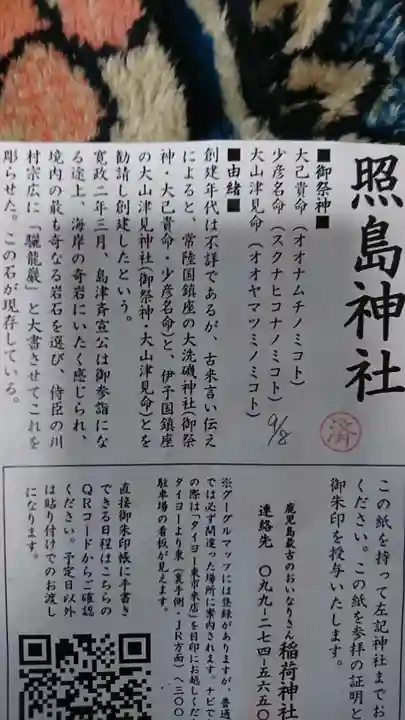 照島神社
■御祭神■
大己貴命（オオナムチノミコト）
少彦名命（スクナヒコナノミコト）
大山津見命（オオヤマツミノミコト）
9/8
済
■由緒■
創建年代は不詳であるが、古来言い伝え
によると、常陸国鎮座の大洗磯神社(御祭
神・大己貴命・少彦名命)と、伊予国鎮座
の大山津見神社(御祭神・大山津見命)とを
勧請し創建したという。
寛政二年三月、島津斉宣公は御参詣にな
る途上、海岸の奇岩にいたく感じられ、
境内の最も奇なる岩石を選び、侍臣の川
村宗広に『驪龍巌』と大書させてこれを
彫らせた。この石が現存している。
この紙を持って左記神社までお
ください。この紙を参拝の証明と
御朱印を授与いたします。
鹿児島最古のおいなりさん
稲荷神社
連絡先 〇九九-二七四-五六五〇
※グーグルマップには登録がありますが、普通
では必ず間違った場所に案内されます。ナビで
の際は「タイヨー東市来店」を目印にお越しくだ
タイヨーより東(裏手側・JR方面)へ三〇〇
駐車場の看板が見えます。
直接御朱印帳に手書き
できる日程はこちらの
QRコードからご確認
ください。予定日以外
は貼り付けでのお渡し
になります。